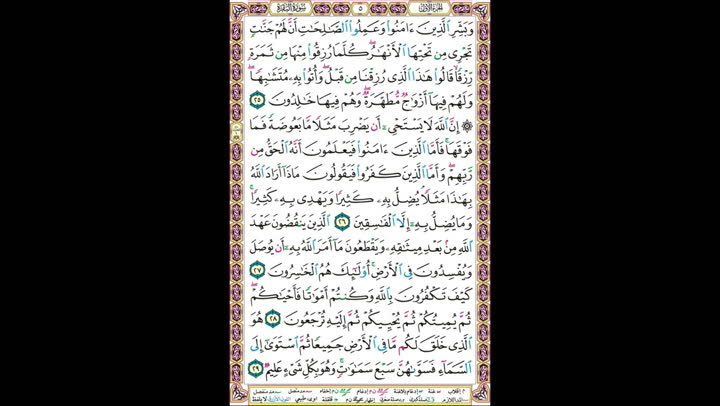 الجزء الأول ٥ سورة البقرة
وَبَشِّرِ الَّذِينَ ءَامَنُوا وَعَمِلُوا الصَّـٰلِحَـٰتِ أَنَّ لَهُمْ جَنَّـٰتٍ
تَجْرِى مِن تَحْتِهَا الْأَنْهَـٰرُ ۖ كُلَّمَا رُزِقُوا مِنْهَا مِن ثَمَرَةٍ
رِّزْقًا قَالُوا هَـٰذَا الَّذِى رُزِقْنَا مِن قَبْلُ ۖ وَأُتُوا بِهِۦ مُتَشَـٰبِهًا ۖ
وَلَهُمْ فِيهَا أَزْوَٰجٌ مُّطَهَّرَةٌ ۖ وَهُمْ فِيهَا خَـٰلِدُونَ ٢٥
۞ إِنَّ اللَّهَ لَا يَسْتَحْىِۦ أَن يَضْرِبَ مَثَلًا مَّا بَعُوضَةً فَمَا
فَوْقَهَا ۚ فَأَمَّا الَّذِينَ ءَامَنُوا فَيَعْلَمُونَ أَنَّهُ الْحَقُّ مِن
رَّبِّهِمْ ۖ وَأَمَّا الَّذِينَ كَفَرُوا فَيَقُولُونَ مَاذَا أَرَادَ اللَّهُ
بِهَـٰذَا مَثَلًا ۘ يُضِلُّ بِهِۦ كَثِيرًا وَيَهْدِى بِهِۦ كَثِيرًا ۚ
وَمَا يُضِلُّ بِهِۦ إِلَّا الْفَـٰسِقِينَ ٢٦ الَّذِينَ يَنقُضُونَ عَهْدَ
اللَّهِ مِن بَعْدِ مِيثَـٰقِهِۦ وَيَقْطَعُونَ مَا أَمَرَ اللَّهُ بِهِۦ أَن يُوصَلَ
وَيُفْسِدُونَ فِى الْأَرْضِ ۚ أُولَـٰئِكَ هُمُ الْخَـٰسِرُونَ ٢٧
كَيْفَ تَكْفُرُونَ بِاللَّهِ وَكُنتُمْ أَمْوَٰتًا فَأَحْيَـٰكُمْ ۖ
ثُمَّ يُمِيتُكُمْ ثُمَّ يُحْيِيكُمْ ثُمَّ إِلَيْهِ تُرْجَعُونَ ٢٨ هُوَ
الَّذِى خَلَقَ لَكُم مَّا فِى الْأَرْضِ جَمِيعًا ثُمَّ اسْتَوَىٰ إِلَى
السَّمَاءِ فَسَوَّىٰهُنَّ سَبْعَ سَمَـٰوَٰتٍ ۚ وَهُوَ بِكُلِّ شَىْءٍ عَلِيمٌ ٢٩